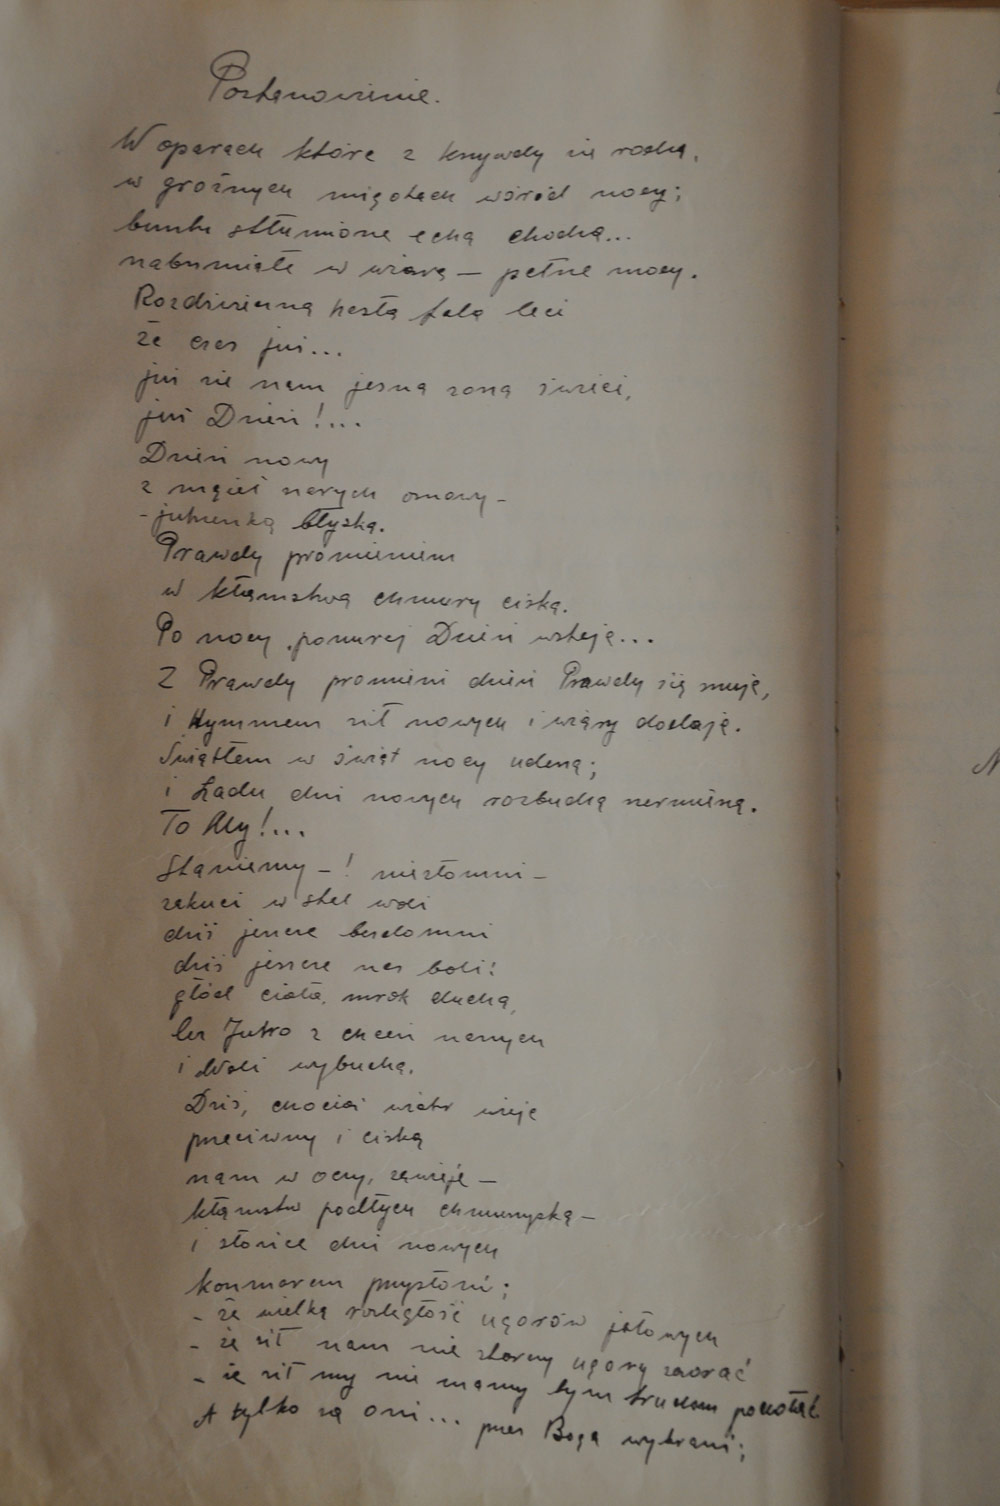 Postanowienie.
W oparach które z krzywdy się rodzą,
w groźnych migotach wśród nocy;
buntu stłumione echa chodzą...
nabrzmiałe w wiarę — pełne mocy.
Rozdzwienną hasła falą leci
że czas już...
już się nam jasna zorza świeci,
już Dzień!...
Dzień nowy
z mgieł szarych osnowy –
– jutrzenką błyska.
Prawdy promieniem
w kłamstwa chmury ciska.
Po nocy ponurej Dzień wstaje...
Z Prawdy promieni dzień Prawdy się snuje,
i Hymnem sił nowych i wiary dodaje.
Światłem w świat nocy uderzą;
i Ładu dni nowych rozbudzą
To My!...
Staniemy – ! niezłomni –
zakuci w stal woli
dziś jeszcze bezdomni
dziś jeszcze nas boli:
głód ciała, mrok ducha,
lecz Jutro z chceń naszych
i Woli wybucha.
Dziś, chociaż wiatr wieje
przeciwny i ciska
nam w oczy, zawieje –
kłamstw podłych chmurzyska –
i słońce dni nowych
koszmarem przysłoni;
– że wielka rozległość ugorów jałowych
– że sił nam nie starczy ugory zaorać
– że sił my nie mamy tym trudom podołać
A tylko są oni... przez Boga wybrani;